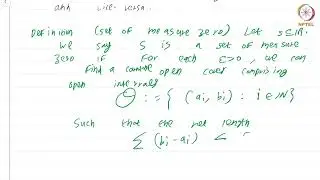 and vice-versa.
NPTEL
Definition (set of measure zero) Let S⊆ℝ.
We say S is a set of measure
zero if for each ε>0, we can
find a countable open cover comprising
open intervals
:= { (ai, bi) : i ∈ ℕ }
Such that the net length
Σ (bi - ai) <